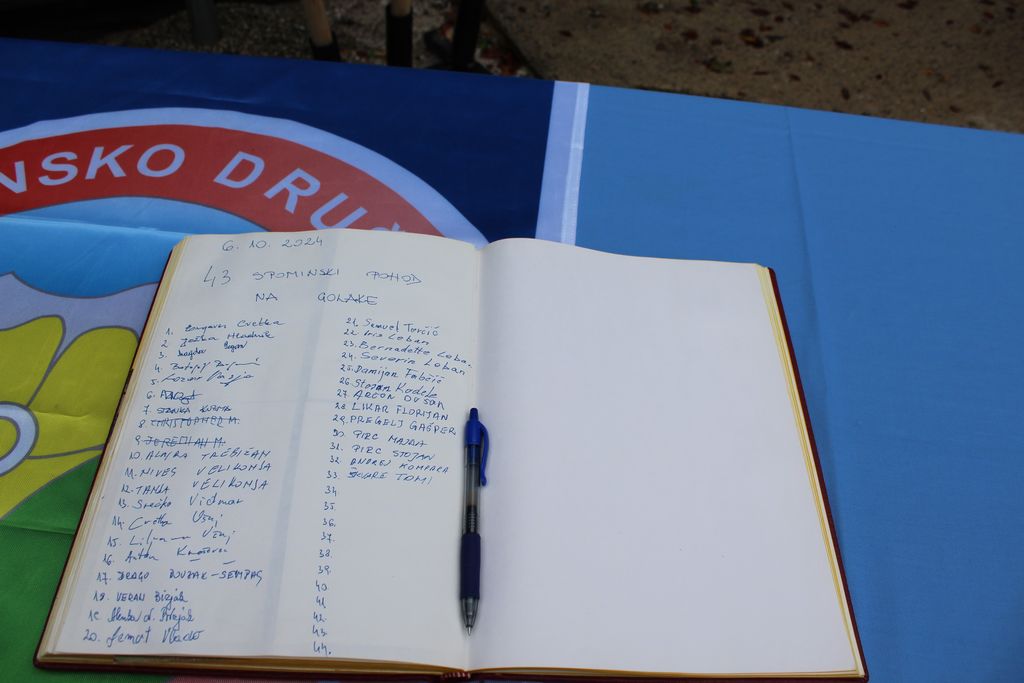 NSKO DRUŠ
6. 10. 2024
43 SPOMINSKI POHOD
NA GOLAKE
1. Cvetka
2. Joška Hladnik
3.
4.
5.
6.
7. STANKA KUZMA
8. CHRISTOPHER M.
9. JEREMIAH M.
10. ALMIRA TREBIŽAN
11. NIVES VELIKONJA
12. TANJA VELIKONJA
13. Srečko Vidmar
14. Cvetka
15.
16. Anton
17. DRAGO -SEMPAS
18. VERAN Bizjak
19.
20. Jamut Vlado
21. Samuel Torčič
22. Iris Leban
23. Bernadette Leba
24. Severin Leban
25. Damijan Fabčič
26. Stojan Kodele
27. ARČON DUŠAN
28. LIKAR FLORIJAN
29. PREGELJ GAŠPER
30. PIRC MAJDA
31. PIRC STOJAN
32. ANDREJ KOMPARA
33. TOMI
34.
35.
36.
37.
38.
39.
40.
41.
42.
43.
44.